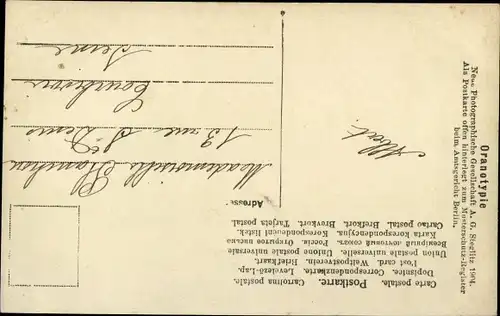 Oranotypie
Neue Photographische Gesellschaft A. G. Steglitz 1904.
Als Postkarte offen hinterlegt zum Musterschutz-Register
beim Amtsgericht Berlin.
Carte postale. Postkarte. Cartolina postale.
Dopisnice. Correspondenzkarte. Levelező-Lap.
Post card. Weltpostverein. Briefkaart.
Union postale universelle. Unione postale universale
Всемірный почтовый союзъ. Россія. Открытое письмо
Karta korespondencyjna. Korespondenční lístek.
Cartao postal. Brefkort. Brevkort. Tarjeta postal.
Adresse:
Mademoiselle
13 rue St Denis
Courbevoie
Seine
Albert